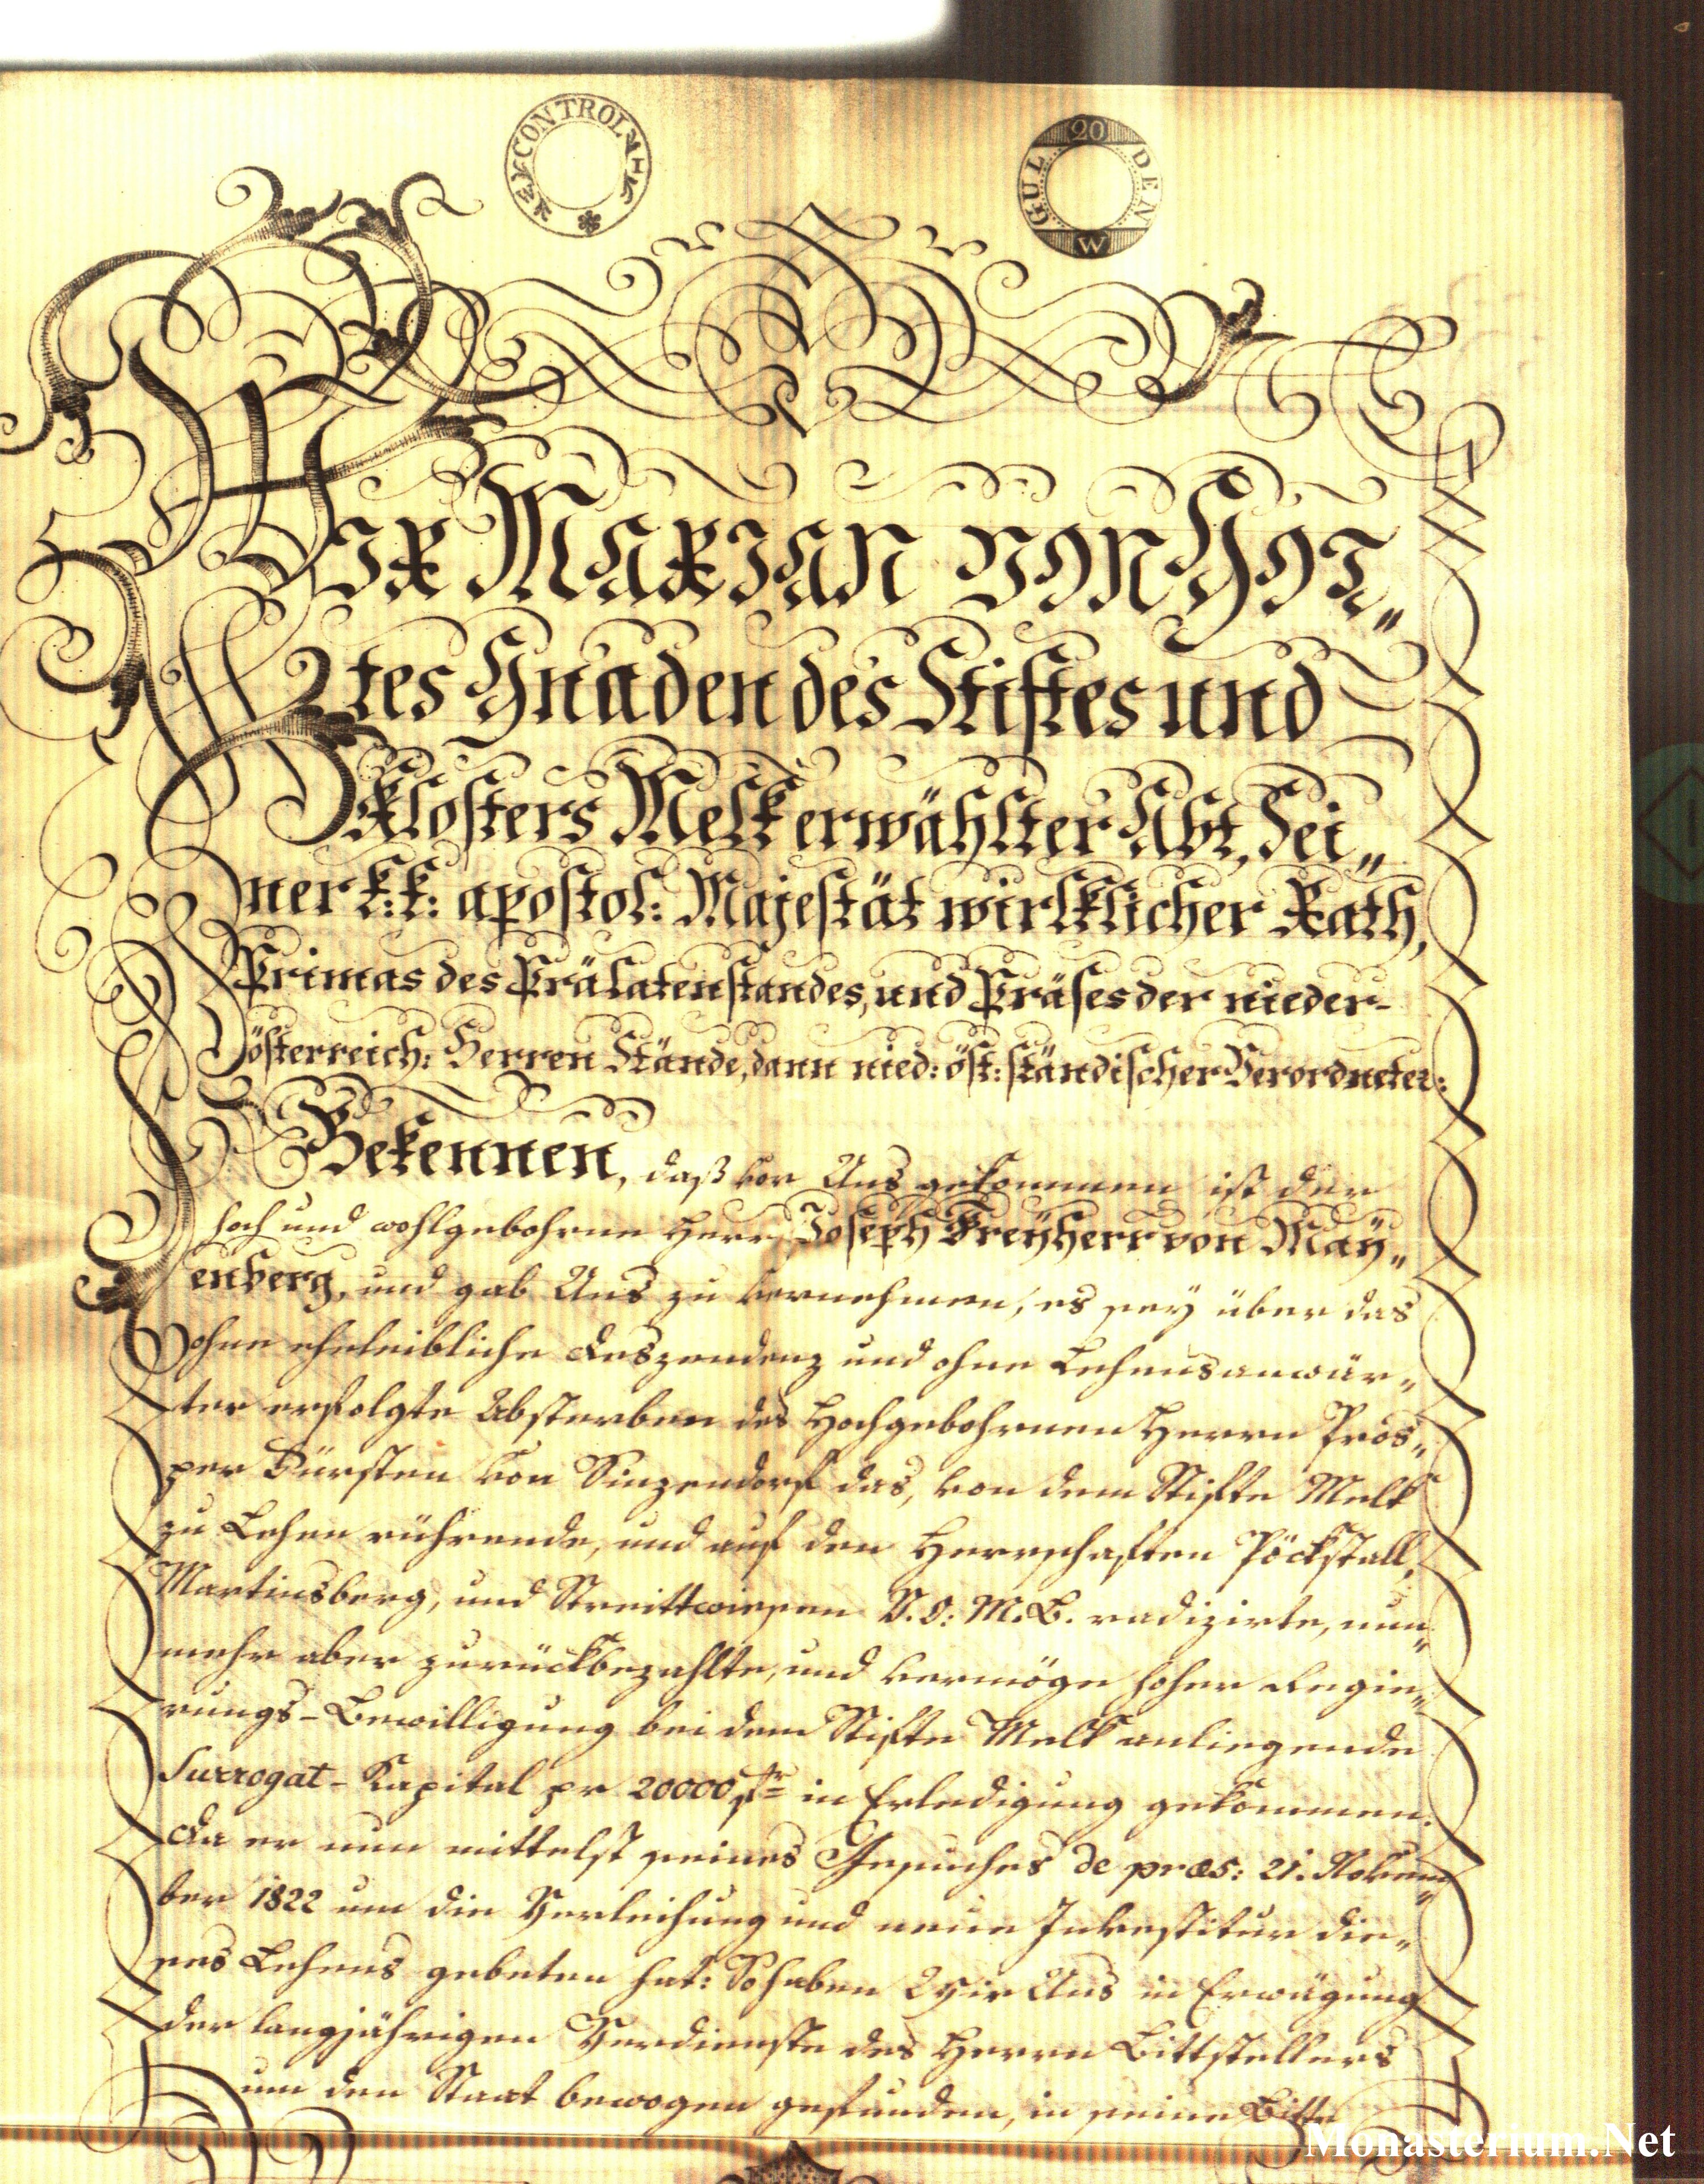 CONTROL
20
GULDEN
W
Wir Marian von Got„
tes Gnaden des Stiftes und
Klosters Melk erwählter Abt, Sei„
ner k: k: apostol: Majestät wirklicher Rath,
Primas des Prälatenstandes, und Präses der nieder-
österreich: Herren Stände, dann nied: öst: ständischer Verordneter:
Bekennen, daß vor Uns gekommen ist der
hoch und wohlgebohrne Herr Joseph Freÿherr von Maÿ„
enberg, und gab Uns zu vernehmen, es seÿ über das
ohne eheleibliche Deszendenz und ohne Lehensanwär„
ter erfolgte Absterben des Hochgebohrnen Herrn Pros„
per Fürsten von Sinzendorf das, von dem Stifte Melk
zu Lehen rührende, und auf den Herrschaften Pöckstall,
Martinsberg, und Streittwiesen V. O: M. B. radizirte, nun„
mehr aber zurückbezahlte, und vermöge hoher Regie„
rungs-Bewilligung bei dem Stifte Melk anliegende
Surrogat-Kapital pr 20000 fr in Erledigung gekommen.
Da er nun mittelst seines Gesuches de præs: 21. Novem„
ber 1822 um die Verleihung und neue Investitur die„
ses Lehens gebeten hat: So haben Wir Uns in Erwägung
der langjährigen Verdienste des Herrn Bittstellers
um den Staat bewogen gefunden, in seine Bitte
Monasterium.Net